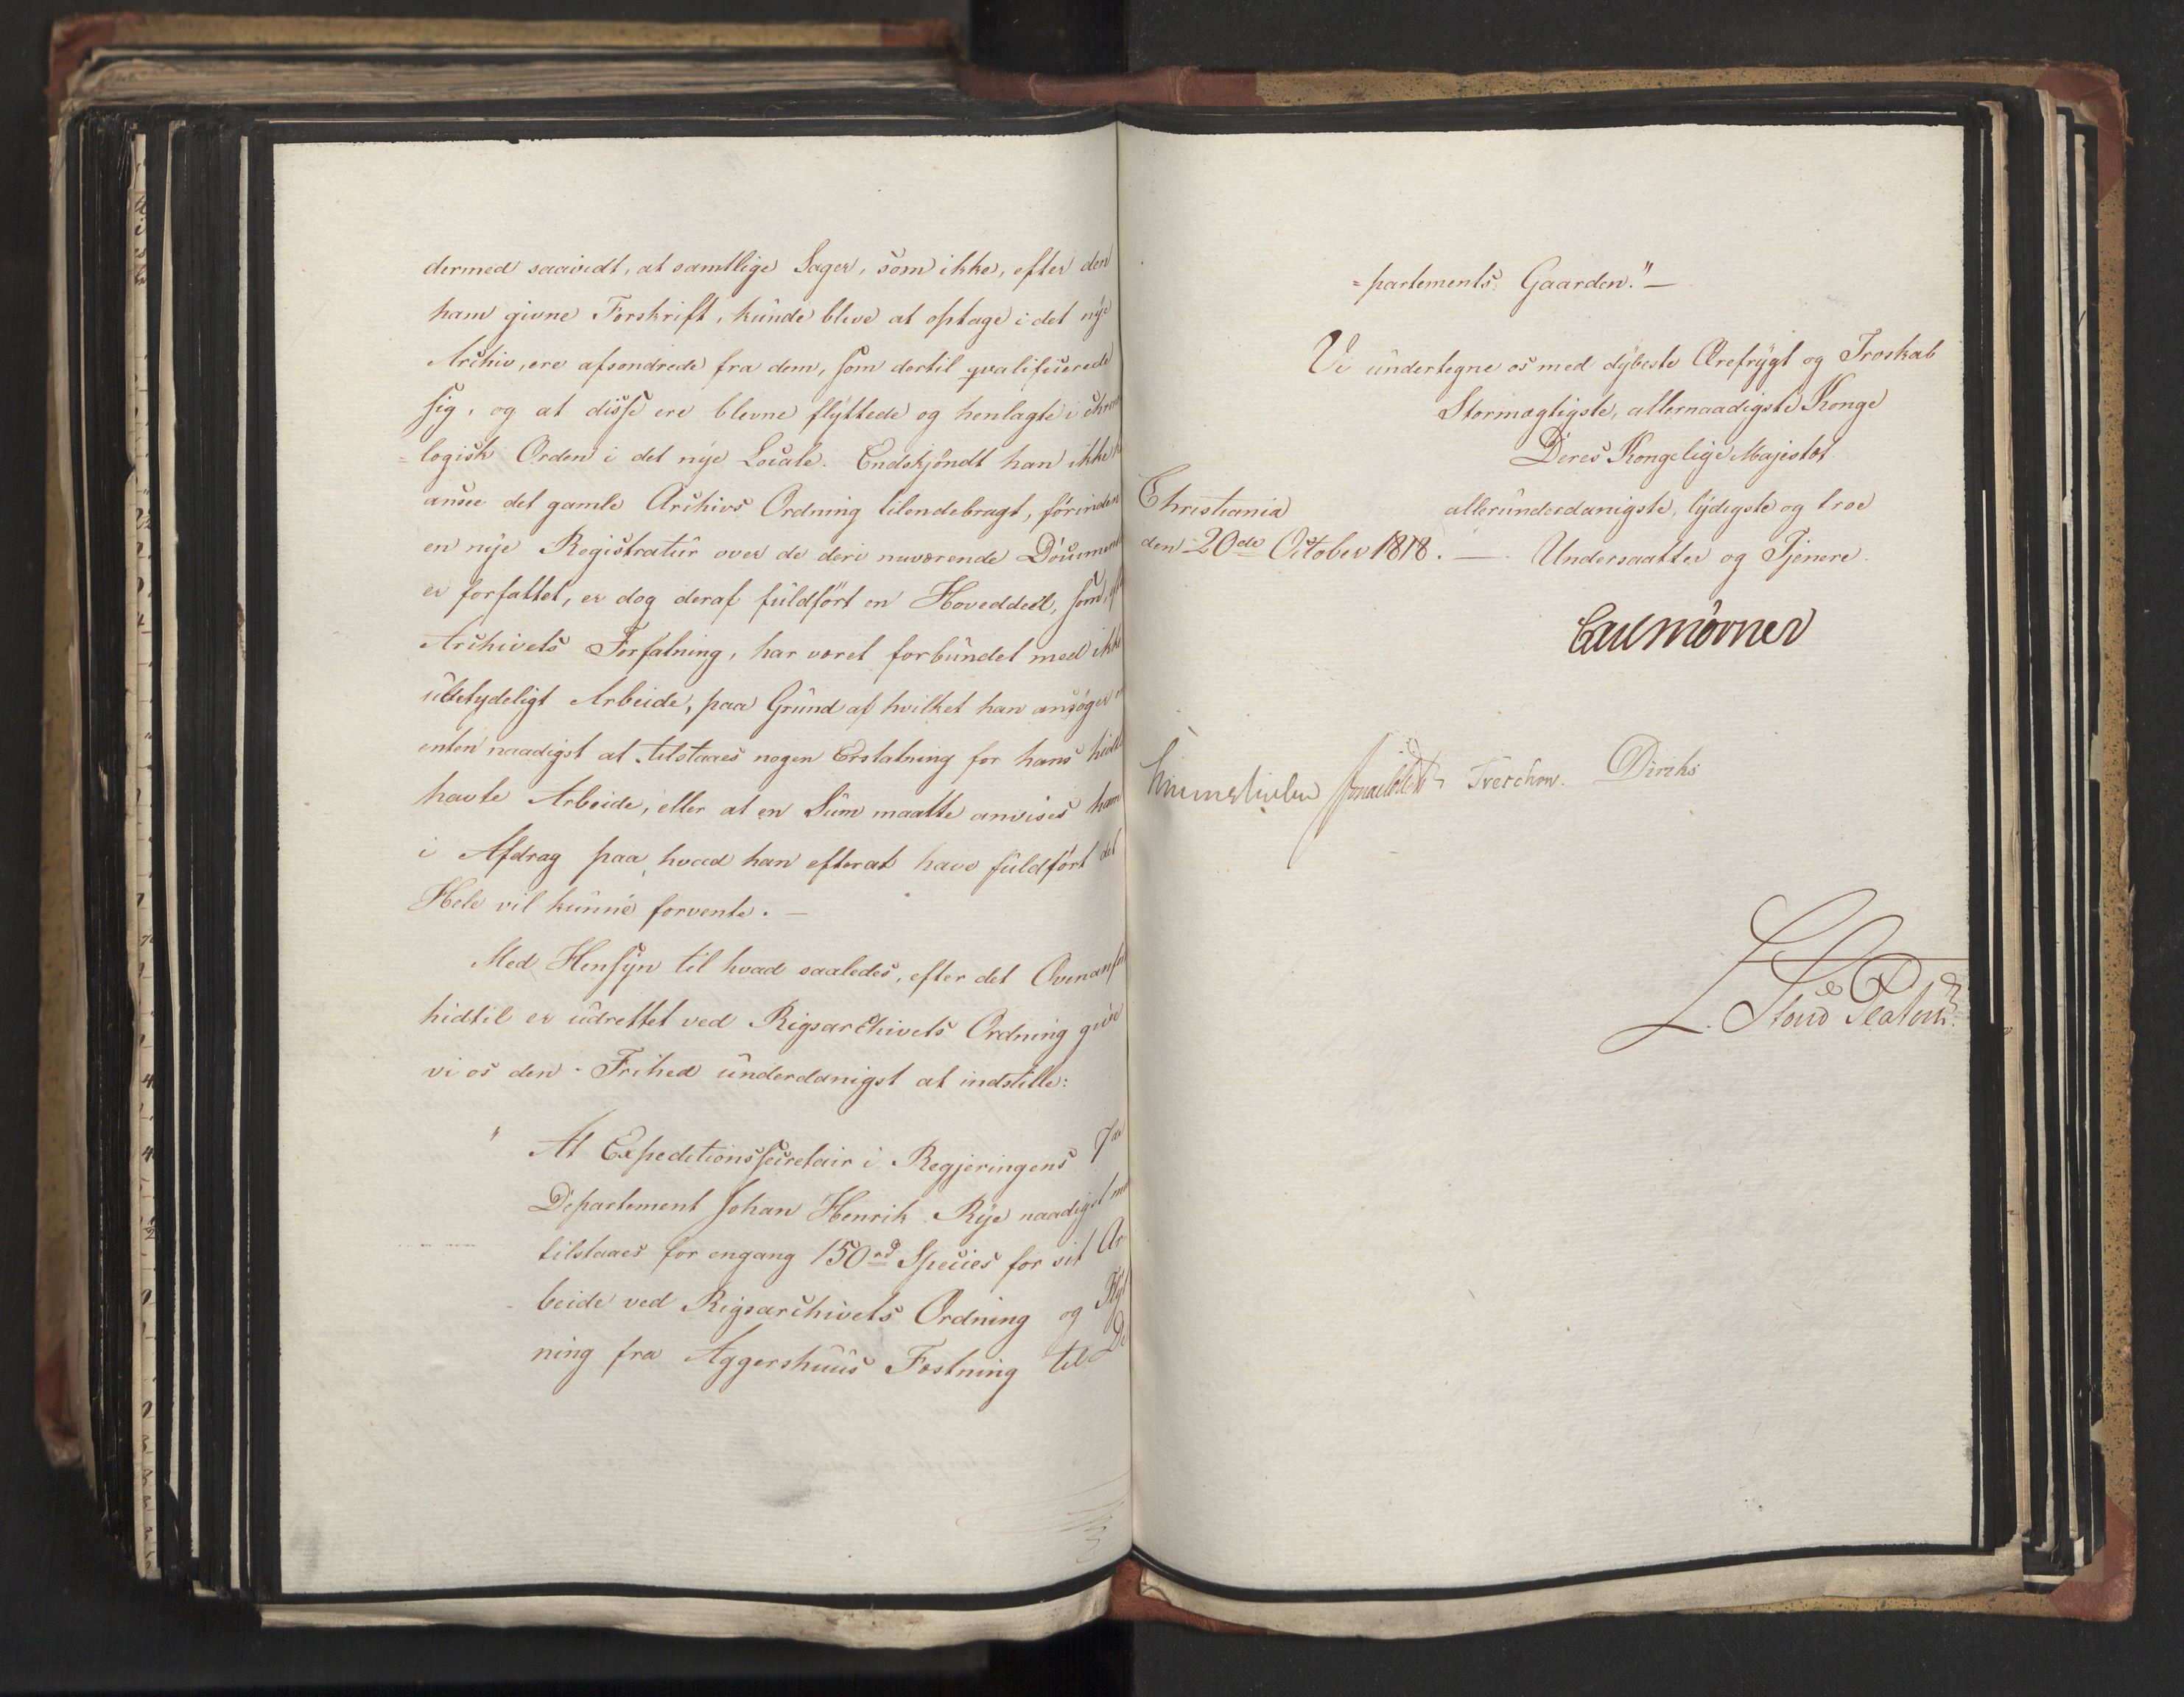 dermed saavidt, at samtlige Sager, som ikke, efter den
ham givne Forskrift, kunde blive at optage i det nye
Archiv, ere afsondrede fra dem, som dertil qvalificerede
sig, og at disse ere blevne flyttede og henlagte i chrono
=logisk Orden i det nye Locale. Endskjøndt han ikke
ansee det gamle Archivs Ordning tilendebragt, førinden
en nye Registratur over de deri nuværende Document
er forfattet, er dog deraf fuldført en Hoveddeel, som,
Archivets Forfatning, har været forbundet med ikke
ubetydeligt Arbeide, paa Grund af hvilket han ansøger
enten naadigst at tilstaaes nogen Erstatning for hans hidtil
havte Arbeide, eller at en Sum maatte anvises ham
i Afdrag paa, hvad han efterat have fuldført det
Hele vil kunne forvente. —
Med Hensyn til hvad saaledes, efter det Ovenanfør
hidtil er udrettet ved Rigsarchivets Ordning give
vi os den Frihed underdanigst at indstille:
" At Expeditionssecretair i Regjeringens 7de
Departement Johan Henrik Rye naadigst
tilstaaes for engang 150 rd Species for sit Ar
beide ved Rigsarchivets Ordning og Flyt
ning fra Aggershuus Fæstning til De
=partements Gaarden." —
Vi undertegne os med dybeste Ærefrygt og Troskab
Stormægtigste, allernaadigste Konge
Deres Kongelige Majestæt
Christiania allerunderdanigste, lydigste og troe
den 20de October 1818. — Undersaatter og Tjenere.
Carl Mörner
Sommerhielm Treschow. Diriks